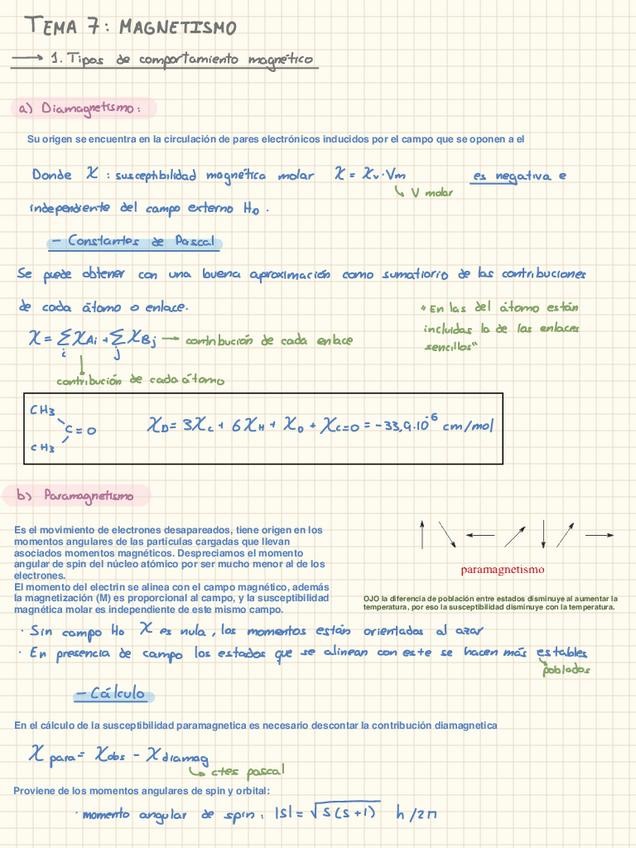 TEMA 7: MAGNETISMO
→ 1. Tipos de comportamiento magnético
a) Diamagnetismo:
Su origen se encuentra en la circulación de pares electrónicos inducidos por el campo que se oponen a el
Donde χ : susceptibilidad magnética molar χ = χv · Vm es negativa e
↳ V molar
independiente del campo externo H₀.
- Constantes de Pascal
Se puede obtener con una buena aproximación como sumatiorio de las contribuciones
de cada átomo o enlace.
"En las del átomo están
incluidas la de las enlaces
sencillos"
χ = Σ χAi + Σ χBj → contribución de cada enlace
i j
contribución de cada átomo
CH3
C = O
CH3
χD = 3χc + 6χH + χo + χc=o = -33,9·10⁻⁶ cm/mol
b) Paramagnetismo
Es el movimiento de electrones desapareados, tiene origen en los
momentos angulares de las partículas cargadas que llevan
asociados momentos magnéticos. Despreciamos el momento
angular de spin del núcleo atómico por ser mucho menor al de los
electrones.
El momento del electrin se alinea con el campo magnético, además
la magnetización (M) es proporcional al campo, y la susceptibilidad
magnética molar es independiente de este mismo campo.
paramagnetismo
OJO la diferencia de población entre estados disminuye al aumentar la
temperatura, por eso la susceptibilidad disminuye con la temperatura.
· Sin campo H₀ χ es nula, los momentos están orientados al azar
· En presencia de campo los estados que se alinean con este se hacen más estables
poblados
- Cálculo
En el cálculo de la susceptibilidad paramagnetica es necesario descontar la contribución diamagnetica
χ para = χobs - χ diamag
↳ ctes pascal
Proviene de los momentos angulares de spin y orbital:
· momento angular de spin: |S| = √S(S+1) h/2π